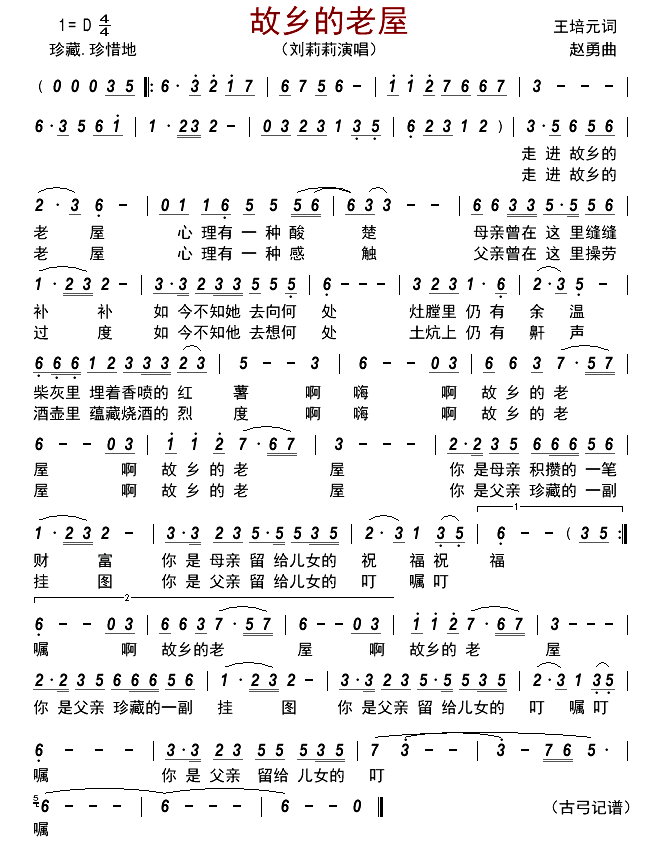 故乡的老屋
1= D 4/4
王培元词
珍藏.珍惜地
（刘莉莉演唱）
赵勇曲
( 0 0 0 3 5 ‖: 6 · 3 2 1 7 | 6 7 1 5 6 - | 1 1 2 7 6 6 7 | 3 - - - |
6 · 3 5 6 1 | 1 · 2 3 2 - | 0 3 2 3 1 3 5 | 6 2 3 1 2 ) | 3 · 5 6 5 6 |
走 进 故乡的
走 进 故乡的
2 · 3 6 - | 0 1 1 6 5 5 5 6 | 6 3 3 - | 6 6 3 3 5 · 5 5 6 |
老 屋 心 理有 一 种 酸 楚 母亲曾在 这 里缝缝
老 屋 心 理有 一 种 感 触 父亲曾在 这 里操劳
1 · 2 3 2 - | 3 · 3 2 3 3 3 5 5 5 | 6 - - - | 3 2 3 1 · 6 | 2 · 3 5 - |
补 补 如 今不知她 去向何 处 灶膛里 仍 有 余 温
过 度 如 今不知他 去想何 处 土炕上 仍 有 鼾 声
6 6 6 1 2 3 3 3 2 3 | 5 - - 3 | 6 - - 0 3 | 6 6 3 7 · 5 7 |
柴灰里 埋着香喷的 红 薯 啊 嗨 啊 故 乡 的 老
酒壶里 蕴藏烧酒的 烈 度 啊 嗨 啊 故 乡 的 老
6 - - 0 3 | 1 1 2 7 · 6 7 | 3 - - - | 2 · 2 3 5 6 6 6 5 6 |
屋 啊 故 乡 的 老 屋 你 是母亲 积攒的 一笔
屋 啊 故 乡 的 老 屋 你 是父亲 珍藏的 一副
1
1 · 2 3 2 - | 3 · 3 2 3 5 · 5 3 5 5 | 2 · 3 1 3 5 | 6 - - ( 3 5 :‖
财 富 你 是 母亲 留 给儿女的 祝 福 祝 福
挂 图 你 是 父亲 留 给儿女的 叮 嘱 叮
2
6 - - 0 3 | 6 6 3 7 · 5 7 | 6 - - 0 3 | 1 1 2 7 · 6 7 | 3 - - - |
嘱 啊 故乡的老 屋 啊 故乡的 老 屋
2 · 2 3 5 6 6 6 5 6 | 1 · 2 3 2 - | 3 · 3 2 3 5 · 5 3 5 5 | 2 · 3 1 3 5 |
你 是父亲 珍藏的一副 挂 图 你 是父亲 留 给儿女的 叮 嘱 叮
6 - - - | 3 · 3 2 3 5 5 5 3 5 5 | 7 3 - - | 3 - 7 6 5 |
嘱 你 是 父亲 留给 儿女的 叮
5 6 - - - | 6 - - - | 6 - - 0 ‖
（古弓记谱）
嘱